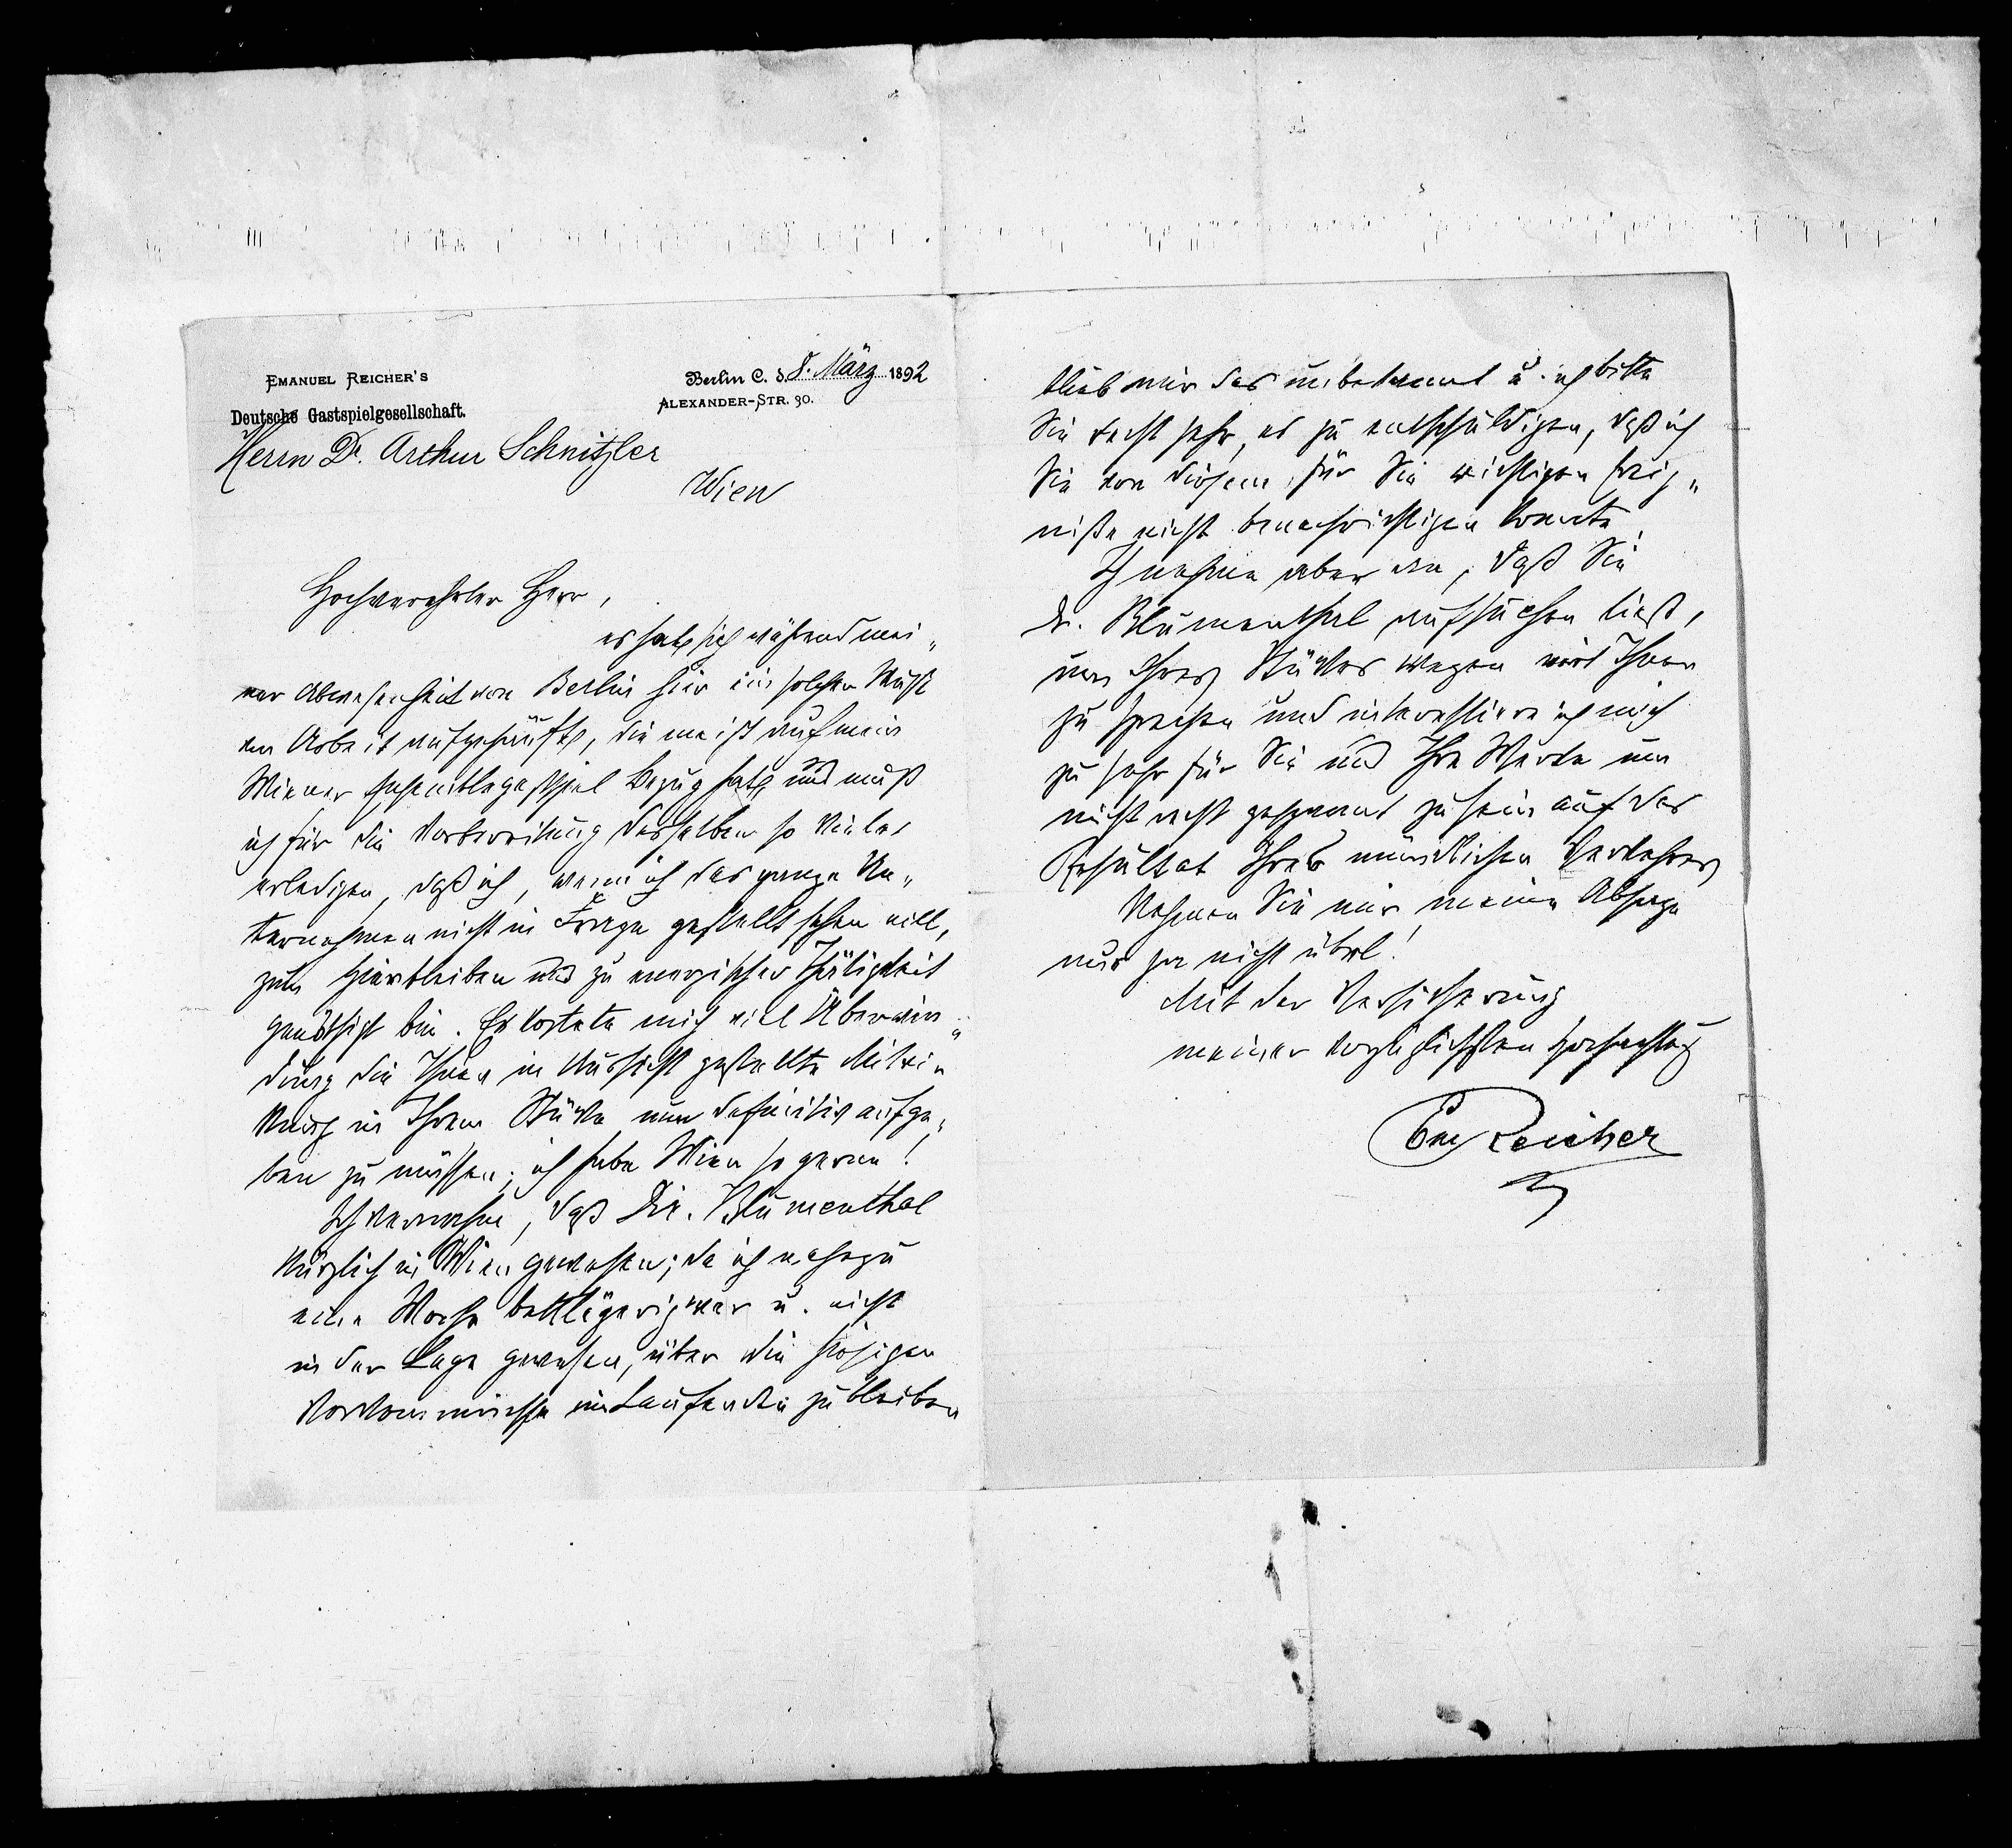 EMANUEL REICHER'S
Deutsche Gastspielgesellschaft.
Berlin C. d. 8. März 1892
ALEXANDER-STR. 30.
Herrn Dr. Arthur Schnitzler
Wien
Hochverehrter Herr,
es hat sich während mei„
ner Abwesenheit von Berlin hier eine solche
Arbeit aufgehäuft, die meist auf mein
Wiener Gesamtgastspiel Bezug hat und muß
ich für die Vorbereitung desselben so Vieles
erledigen, daß ich, wenn ich das ganze Un„
ternehmen nicht in Frage gestellt sehen will,
zum Hierbleiben und zu energischer Thätigkeit
genöthigt bin. Es kostete mich viel Überwin„
dung die Ihnen in Aussicht gestellte Mitwir„
kung in Ihrem Stücke nun definitiv aufge„
ben zu müssen; ich habe Wien so gerne!
Ich vernehme, daß Dir. Blumenthal
kürzlich in Wien gewesen; da ich nahezu
eine Woche bettlägerig war u. nicht
in der Lage gewesen, über die hiesigen
Vorkommnisse im Laufenden zu bleiben
blieb mir das unbekannt u. ich bitte
Sie recht sehr, es zu entschuldigen, daß ich
Sie von diesem, für Sie wichtigen Ereig„
niße nicht benachrichtigen konnte.
Ich nehme aber an, daß Sie
Dr. Blumenthal aufsuchen ließ,
um Ihres Stückes wegen mit Ihnen
zu sprechen und interessiere ich mich
zu sehr für Sie und Ihre Werke um
nicht recht gespannt zu sein auf das
Resultat Ihres mündlichen Verkehres
Nehmen Sie mir meine Absage
nur ja nicht übel!
Mit der Versicherung
meiner vorzüglichsten Hochachtung
Em Reicher